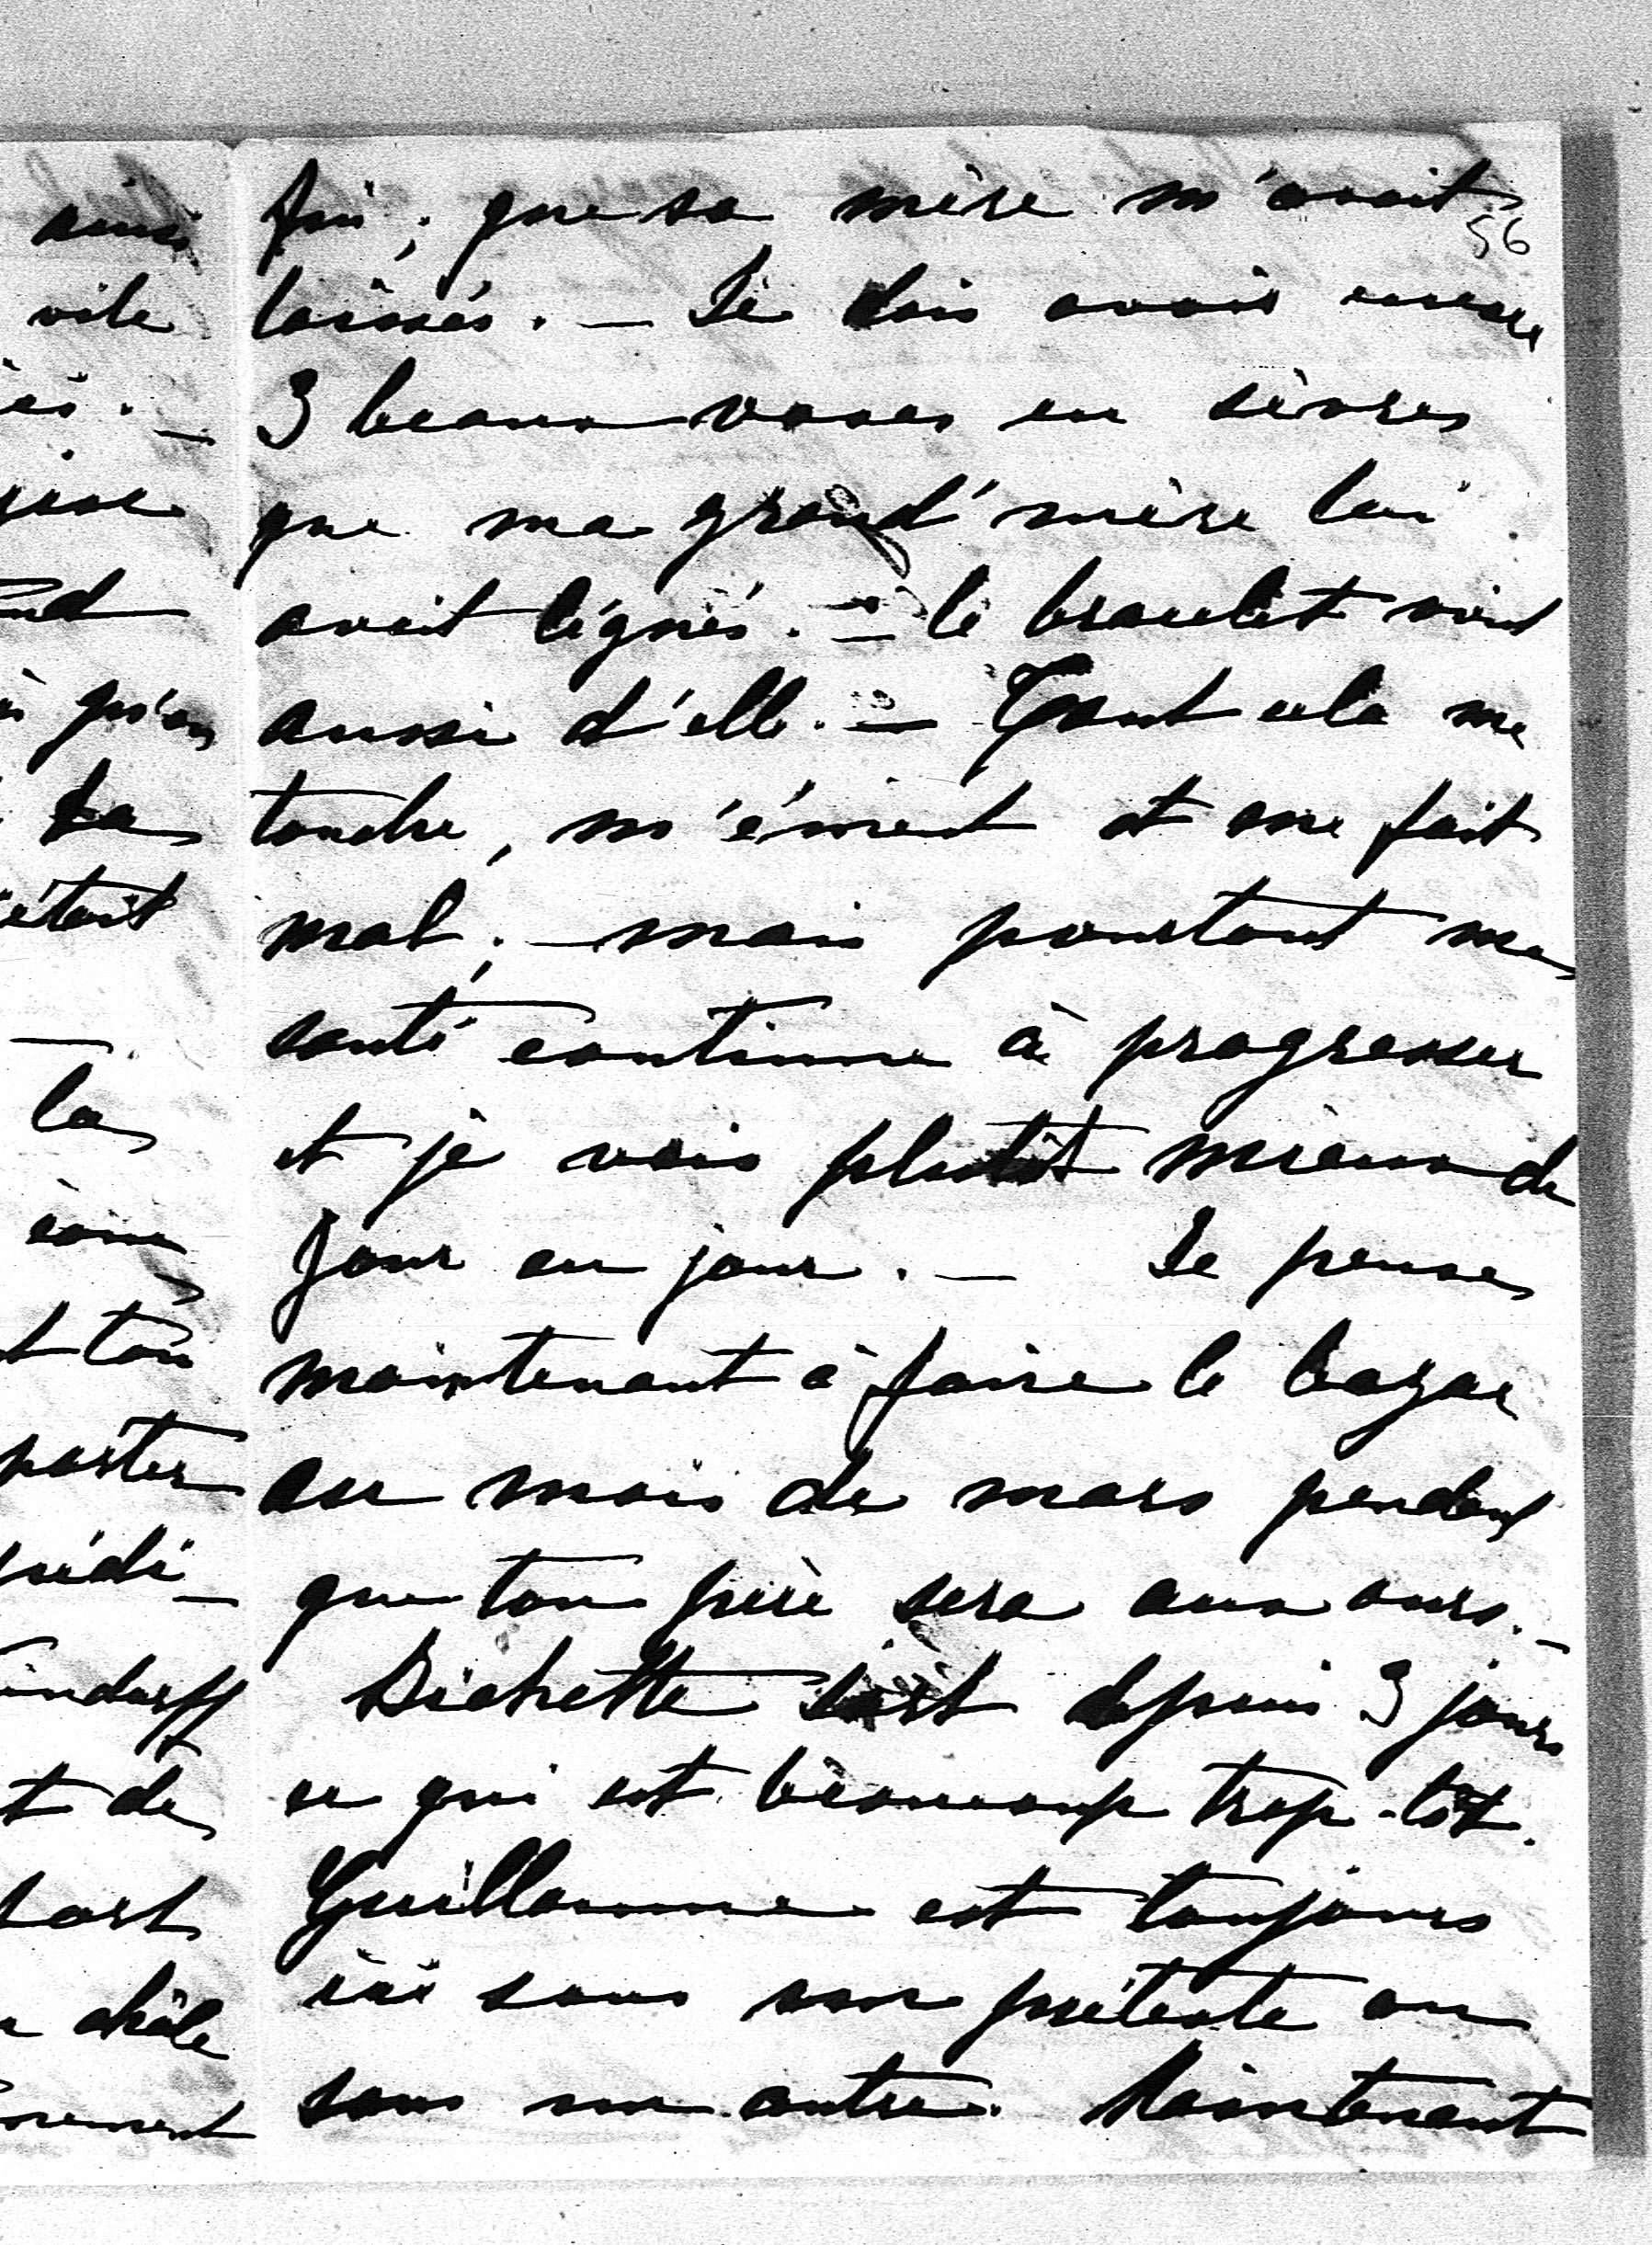 fini; que sa mère m'avait
56
laissés. — Je dois avoir encore
3 beaux vases en sèvres
que ma grand'mère lui
avait légués. — le bracelet vient
aussi d'elle. — Tout cela me
touche, m'émeut et me fait
mal; — mais pourtant ma
santé continue à progresser
et je vais plutôt mieux de
jour en jour. — Je pense
maintenant à faire le bazar
au mois de mars pendant
que ton père sera aux ours. —
Bichette sort depuis 3 jours
ce qui est beaucoup trop tôt.
Guillaume est toujours
ici sous un prétexte ou
sous un autre. Maintenant
ainsi
vite
la
était
la
ton
porter
de
sort
châle